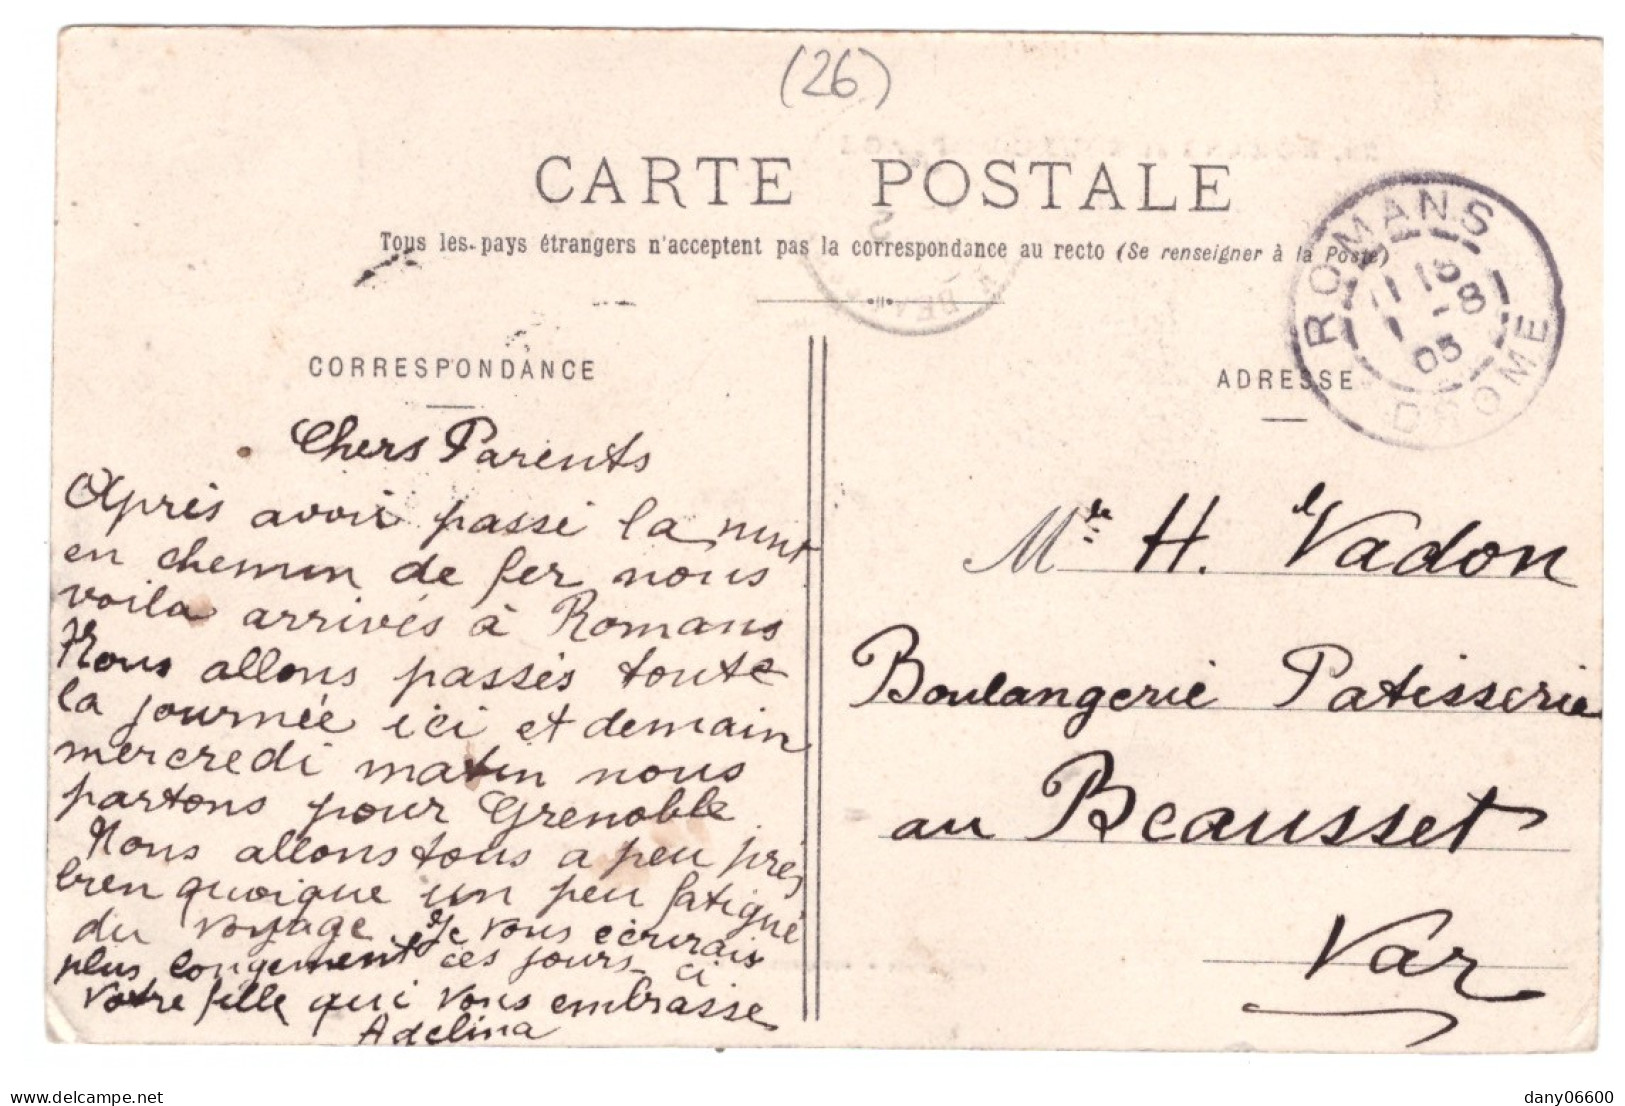 (26)
CARTE POSTALE
Tous les pays étrangers n'acceptent pas la correspondance au recto (Se renseigner à la Poste)
ROMANS
DROME
8
05
CORRESPONDANCE
Chers Parents
Après avoir passé la nuit
en chemin de fer nous
voila arrivés à Romans
Nous allons passés toute
la journée ici et demain
mercredi matin nous
partons pour Grenoble.
Nous allons tous a peu près
bien quoique un peu fatigué
du voyage. Je vous écrirais
plus longement ces jours-ci
Votre fille qui vous embrasse
Adelina
ADRESSE
H. Vadon
Boulangerie Patisserie
au Beausset
Var
delcampe.net
dany06600